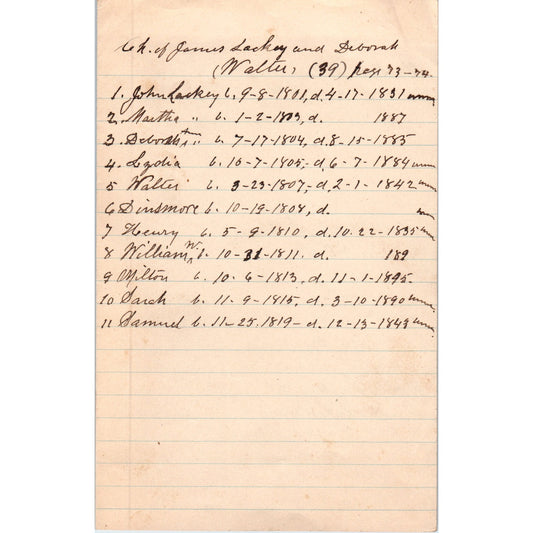 Ch. of James Lackey and Deborah
(Walter, (39) page 73-74.
1. John Lackey b. 9-8-1801, d. 4-17-1831 unm
2. Martha " b. 1-2-1803, d. 1887
3. Deborah " b. 7-17-1804, d. 8-15-1885
4. Lydia b. 10-7-1805, d. 6-7-1884 unm
5 Walter b. 3-23-1807, d. 2-1-1842 unm
6 Dinsmore b. 10-19-1808, d. unm
7 Henry b. 5-9-1810, d. 10.22-1835 unm
8 William W. b. 10-31-1811. d. 189
9 Milton b. 10-6-1813, d. 11-1-1895.
10 Sarah b. 11-9-1815, d. 3-10-1890 unm
11 Samuel b. 11-25.1819- d. 12-13-1843 unm